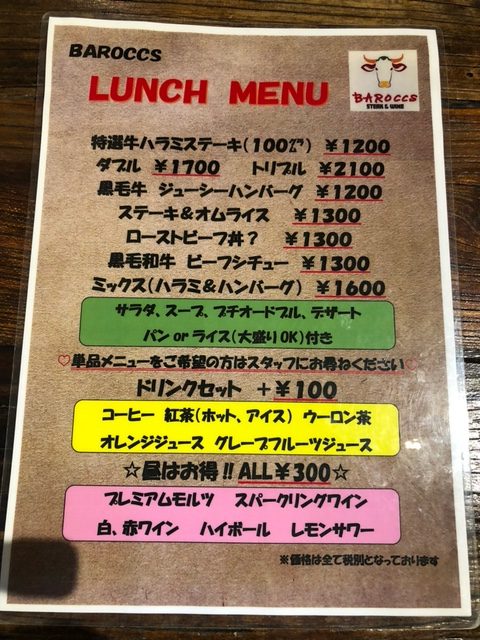 BAROCCS
LUNCH MENU
BAROCCS
STEAK & WINE
特選牛ハラミステーキ(100㌘) ¥1200
ダブル ¥1700 トリプル ¥2100
黒毛牛 ジューシーハンバーグ ¥1200
ステーキ&オムライス ¥1300
ローストビーフ丼? ¥1300
黒毛和牛 ビーフシチュー ¥1300
ミックス(ハラミ&ハンバーグ) ¥1600
サラダ、スープ、プチオードブル、デザート
パン or ライス(大盛りOK)付き
♡単品メニューをご希望の方はスタッフにお尋ねください♡
ドリンクセット +¥100
コーヒー 紅茶(ホット、アイス) ウーロン茶
オレンジジュース グレープフルーツジュース
☆昼はお得!! ALL¥300☆
プレミアムモルツ スパークリングワイン
白、赤ワイン ハイボール レモンサワー
※価格は全て税別となっております